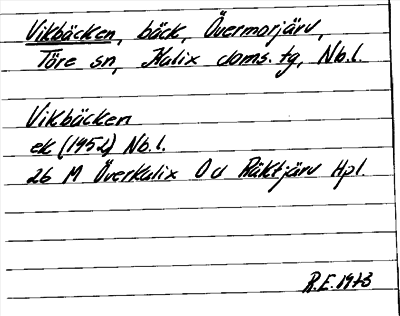 Vikbäcken, bäck, Övermorjärv,
Töre sn, Kalix doms. tg, Nb.l.
Vikbäcken
ek (1952) Nb.l.
26 M Överkalix Od Räktjärv Hpl.
R.E. 1973